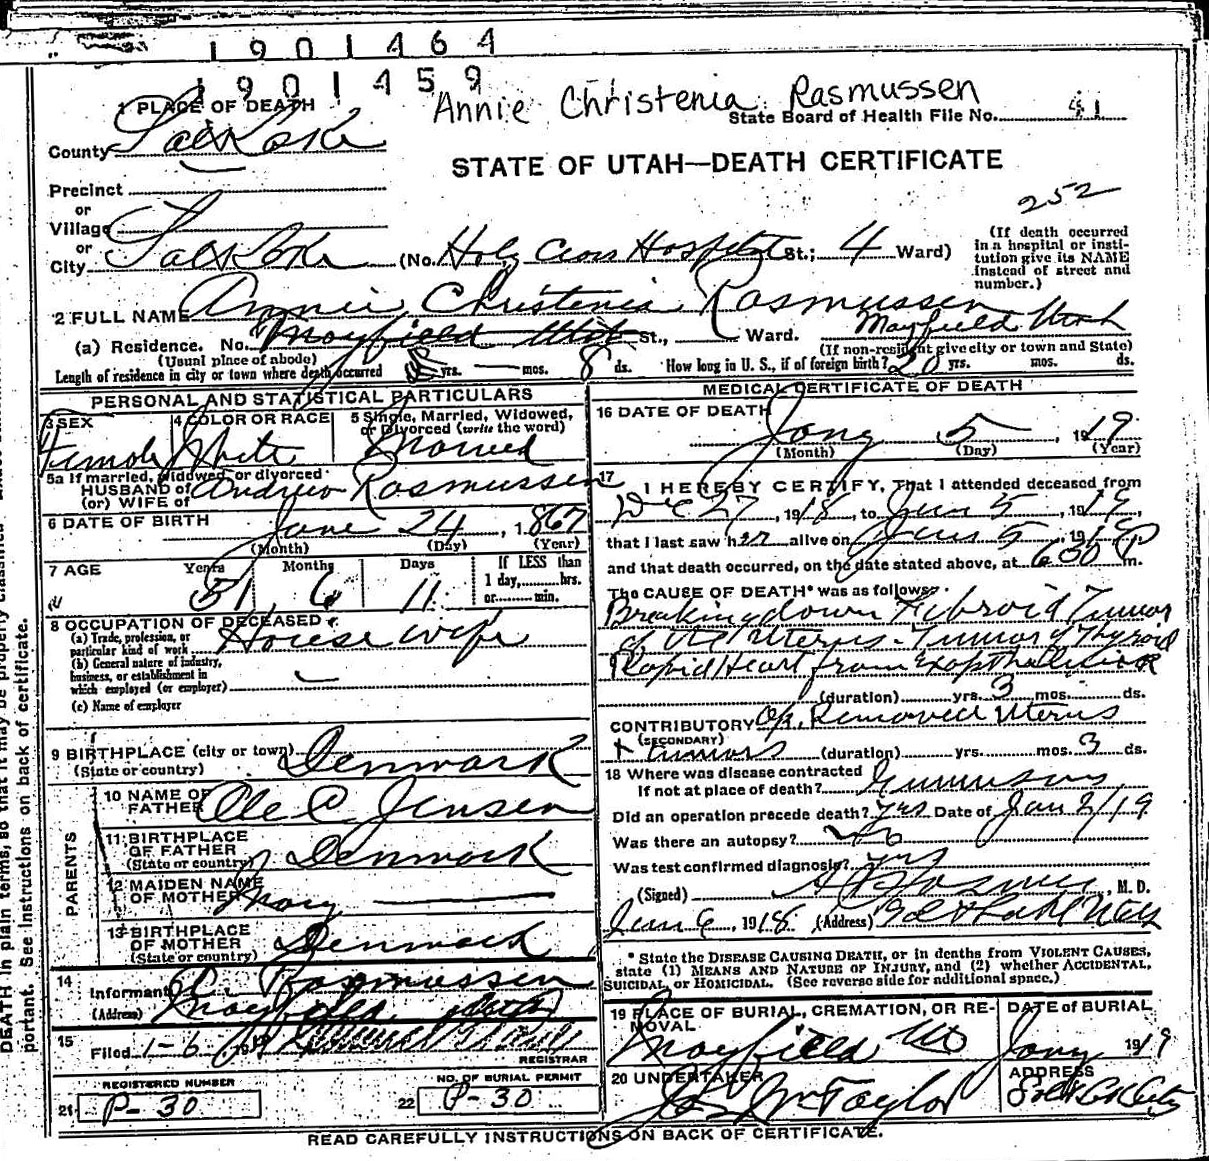 1901464
1901459
Annie Christenia Rasmussen
1 PLACE OF DEATH
State Board of Health File No. 41
County Salt Lake
STATE OF UTAH—DEATH CERTIFICATE
Precinct
252
or
Village
or
City Salt Lake (No. Holy Cross Hospital St.; 4 Ward)
(If death occurred
in a hospital or insti-
tution give its NAME
instead of street and
number.)
2 FULL NAME Annie Christenia Rasmussen
(a) Residence. No. Mayfield Utah St., Ward. Mayfield Utah
(Usual place of abode) (If non-resident give city or town and State)
Length of residence in city or town where death occurred yrs. — mos. 8 ds. How long in U. S., if of foreign birth? yrs. mos. ds.
PERSONAL AND STATISTICAL PARTICULARS
3 SEX Female
4 COLOR OR RACE White
5 Single, Married, Widowed,
or Divorced (write the word)
Married
5a If married, widowed, or divorced
HUSBAND of
(or) WIFE of Andrew Rasmussen
6 DATE OF BIRTH June 24, 1867
(Month) (Day) (Year)
7 AGE Years 51 Months 6 Days 11
If LESS than
1 day, hrs.
or min.
8 OCCUPATION OF DECEASED
(a) Trade, profession, or
particular kind of work House wife
(b) General nature of industry,
business, or establishment in
which employed (or employer)
(c) Name of employer
9 BIRTHPLACE (city or town) Denmark
(State or country)
PARENTS
10 NAME OF
FATHER Ole C. Jensen
11 BIRTHPLACE
OF FATHER Denmark
(State or country)
12 MAIDEN NAME
OF MOTHER Mary —
13 BIRTHPLACE
OF MOTHER Denmark
(State or country)
14 Informant Rasmussen
(Address) Mayfield Utah
15 Filed 1-6 1919
REGISTRAR
REGISTERED NUMBER
21 P-30
NO. OF BURIAL PERMIT
22 P-30
MEDICAL CERTIFICATE OF DEATH
16 DATE OF DEATH
Jany 5, 1919
(Month) (Day) (Year)
17 I HEREBY CERTIFY, That I attended deceased from
Dec 27, 1918, to Jan 5, 1919,
that I last saw her alive on Jan 5, 1919
and that death occurred, on the date stated above, at 6 00 P m.
The CAUSE OF DEATH* was as follows:
Breaking down Fibroid Tumor
of the Uterus - Tumor of Thyroid
Rapid Heart from
(duration) yrs. 3 mos. ds.
CONTRIBUTORY Op. Removed Uterus
(SECONDARY)
+ tumors (duration) yrs. mos. 3 ds.
18 Where was disease contracted
If not at place of death?
Did an operation precede death? yes Date of Jan 2/19
Was there an autopsy? No
Was test confirmed diagnosis? yes
(Signed) , M. D.
Jan 6, 1918 (Address)
* State the DISEASE CAUSING DEATH, or in deaths from VIOLENT CAUSES,
state (1) MEANS AND NATURE OF INJURY, and (2) whether ACCIDENTAL,
SUICIDAL, or HOMICIDAL. (See reverse side for additional space.)
19 PLACE OF BURIAL, CREMATION, OR RE-
MOVAL
Mayfield Ut
DATE of BURIAL
Jany 1919
20 UNDERTAKER
Jos Wm Taylor
ADDRESS
Salt Lake City
READ CAREFULLY INSTRUCTIONS ON BACK OF CERTIFICATE.
DEATH in plain terms, so that it may be properly classified
portant. See Instructions on back of certificate.